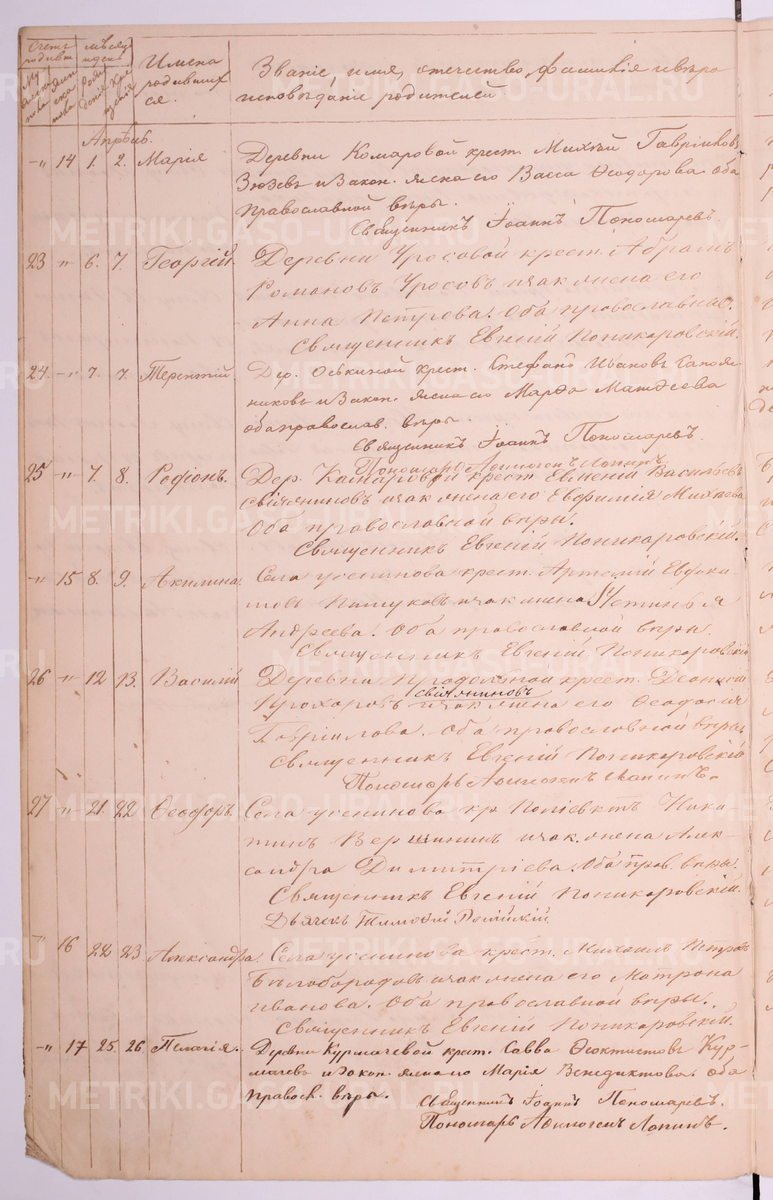 Счетъ родивш.
Мужеска пола
Женска
мѣсяцъ и день
Рожденія
Крещенія
Имена
родивших
ся.
Званіе, имя, отечество, фамилія и вѣро
исповѣданіе родителей
Апрѣль.
-"- 14 1. 2. Марія
Деревни Комаровой крест. Михѣй Гавріиловъ
Зюзевъ и закон. жена его Васса Ѳеодорова оба
православной вѣры.
Священникъ Іоаннъ Пономаревъ.
23 " 6. 7. Георгій.
Деревни Уросовой крест. Абрамъ
Романовъ Уросовъ и зак. жена его
Анна Петрова. Оба православные.
Священникъ Евгеній Поникаровскій.
24. -"- 7. 7. Терентій.
Дер. Оськиной крест. Стефанъ Ивановъ Сапож
никовъ и закон. жена его Марѳа Матѳеева
оба православ. вѣры.
Священникъ Іоаннъ Пономаревъ.
Пономарь Аѳиногенъ Лапинъ.
25 " 7. 8. Родіонъ.
Дер. Камаровой крест. Евгеній Васильевъ
Свіяжениновъ и зак. жена его Евфимія Михѣева
Оба православной вѣры.
Священникъ Евгеній Поникаровскій.
-"- 15 8. 9. Акилина.
Села Устинова крест. Артемій
Пашуковъ и зак. жена Устинья
Андреева. Оба православной вѣры.
Священникъ Евгеній Поникаровскій
26 " 12 13. Василій
Деревни Продольной крест. Деонисій
Свіяжениновъ
Прохоровъ и зак. жена его Ѳеодосія
Гавріилова. Оба православной вѣры.
Священникъ Евгеній Поникаровскій
Пономарь Аѳиногенъ Лапинъ.
27 " 21 22 Ѳеодоръ.
Села Устинова кр. Поліевктъ Ники
тинъ Вершининъ и зак. жена Алек-
сандра Димитріева. Оба прав. вѣры.
Священникъ Евгеній Поникаровскій.
Дьячекъ Тимоѳей
-"- 16 22 23. Александра.
Села Устинова крест. Михаилъ Петровъ
Бѣлобородовъ и зак. жена его Матрона
Иванова. Оба православной вѣры.
Священникъ Евгеній Поникаровскій.
-"- 17 25. 26. Пелагія.
Деревни Курмачевой крест. Савва Ѳеоктистовъ Кур-
мачевъ и закон. жена его Марія Венедиктова оба
правосл. вѣры.
Священникъ Іоаннъ Пономаревъ.
Пономарь Аѳиногенъ Лапинъ.
METRIKI.GASO-URAL.RU